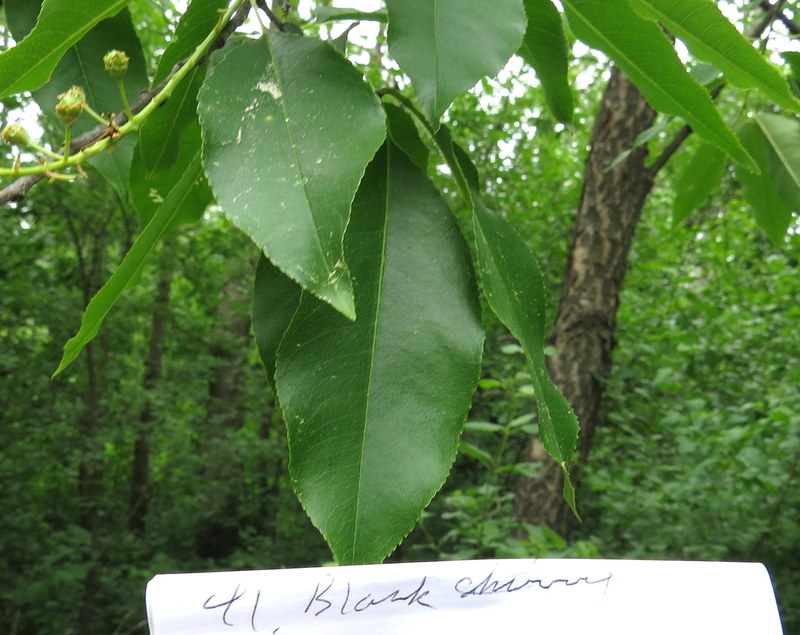 41. Black cherry